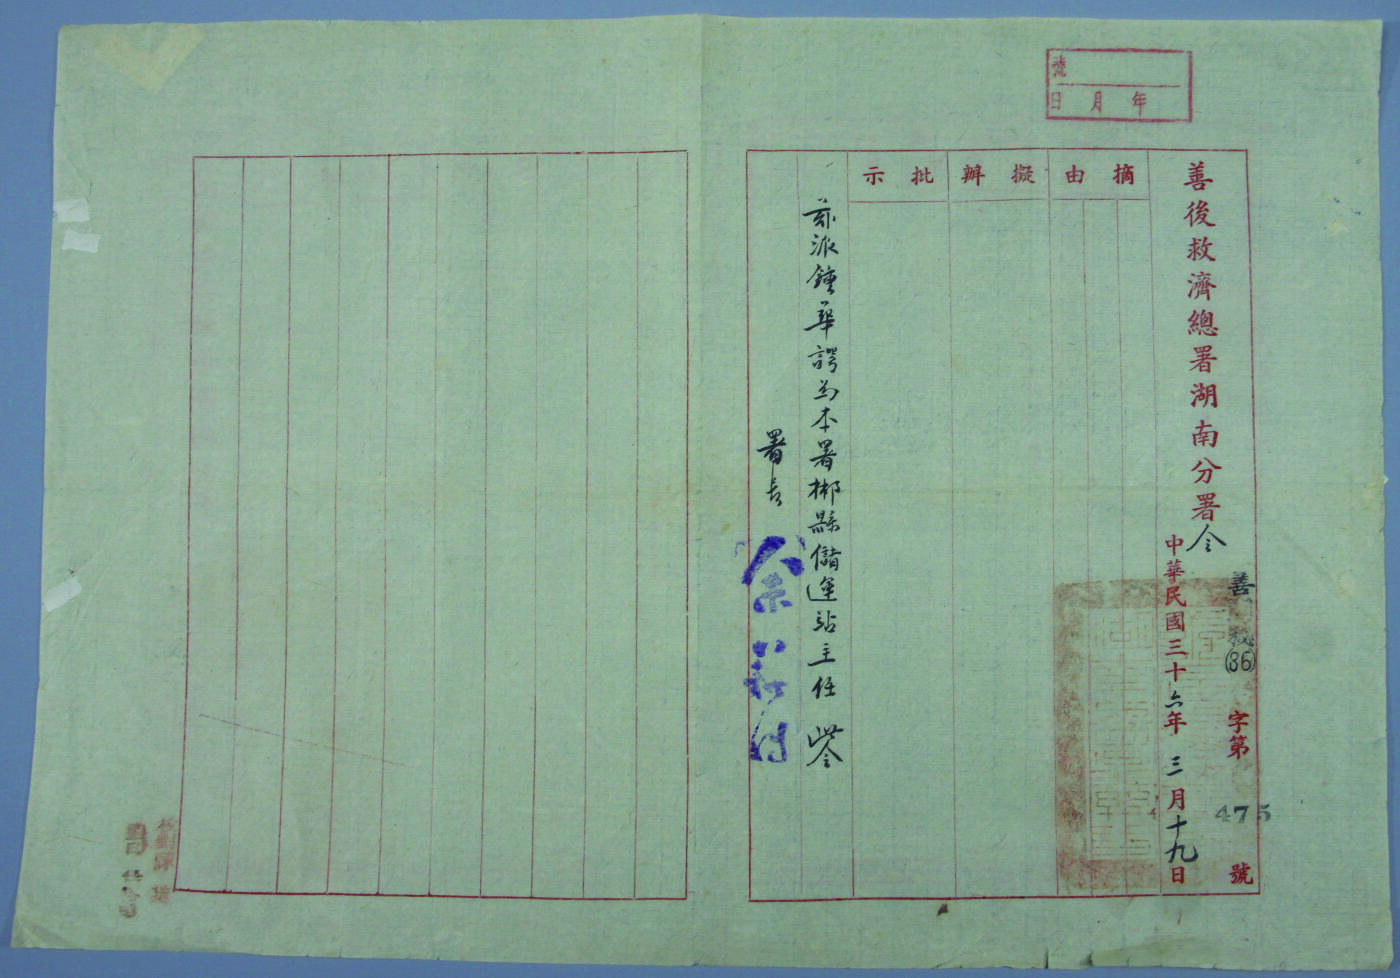 號
年月日
善後救濟總署湖南分署令
善秘(36)字第475號
中華民國三十六年三月十九日
摘由
擬辦
批示
茲派鍾華諤為本署郴縣儲運站主任 此令
署長
余籍傳
校對